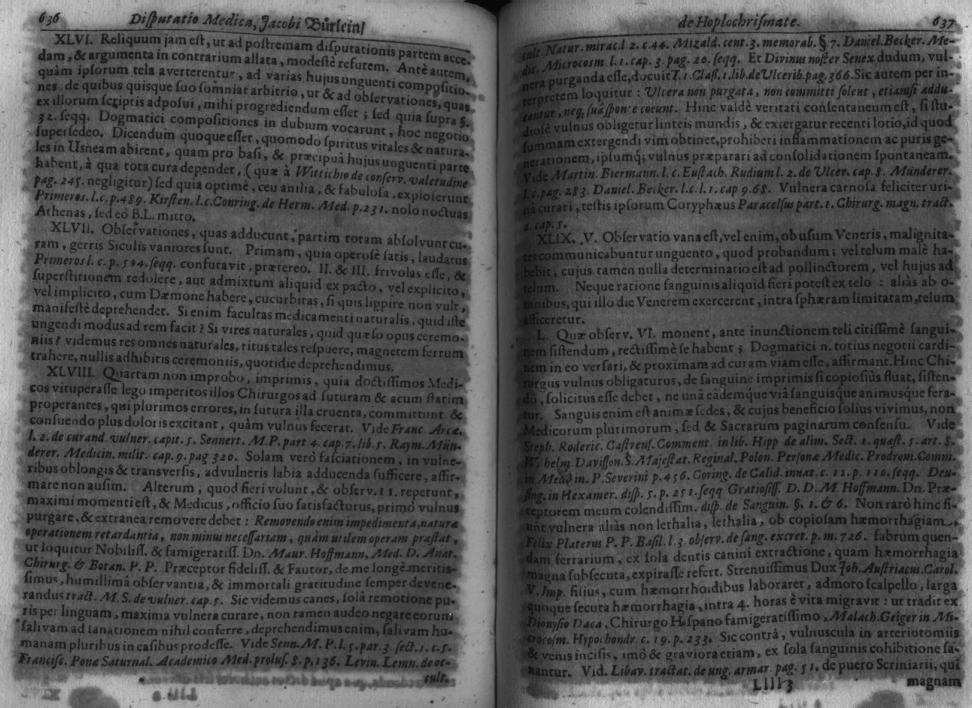 636 Disputatio Medica, Jacobi Bürlein/
XLVI. Reliquum jam est, ut ad postremam disputationis partem acce-
dam, & argumenta in contrarium allata, modestè refutem. Antè autem,
quàm ipsorum tela averterentur, ad varias hujus unguenti compositio-
nes de quibus quisque suo somniat arbitrio, ut & ad observationes, quas
ex illorum scriptis adposui, mihi progrediendum esset; sed quia supra §.
32. seqq. Dogmatici compositiones in dubium vocarunt, hoc negotio
supersedeo. Dicendum quoque esset, quomodo spiritus vitales & natura-
les in Usneam abirent, quam pro basi, & præcipuâ hujus unguenti parte
habent, à qua tota cura dependet, (quæ à Wittichio de conserv. valetudine
pag. 245. negligitur) sed quia optimè, ceu anilia, & fabulosa, exploserunt
Primeros. l. c. p. 489. Kirsten. l. c. Conring. de Herm. Med. p. 231. nolo noctuas
Athenas, sed eò B.L. mitto.
XLVII. Observationes, quas adducunt, partim totam absolvunt cu-
ram, gerris Siculis vaniores sunt. Primam, quia operosè satis, laudatus
Primeros l. c. p. 504. seqq. confutavit, prætereo. II. & III. frivolas esse, &
superstitionem redolere, aut admixtum aliquid ex pacto, vel explicito,
vel implicito, cum Dæmone habere, cucurbitas, si quis lippire non vult,
manifestè deprehendet. Si enim facultas medicamenti naturalis, quid iste
ungendi modus ad rem facit? Si vires naturales, quid quæso opus ceremo-
niis? videmus res omnes naturales, ritus tales respuere, magnetem ferrum
trahere, nullis adhibitis ceremoniis, quotidie deprehendimus.
XLVIII. Quartam non improbo, imprimis, quia doctissimos Medi-
cos vituperasse lego imperitos illos Chirurgos ad suturam & acum statim
properantes, qui plurimos errores, in sutura illa cruenta, committunt &
consuendo plus doloris excitant, quàm vulnus fecerat. Vide Franc Arcæ.
l. 2. de curand vulner. capit. 5. Sennert. M. P. part 4. cap. 7. lib. 5. Raym. Mün-
derer. Medicin. milit. cap. 9. pag 320. Solam verò fasciationem, in vulne-
ribus oblongis & transversis, ad vulneris labia adducenda sufficere, affir-
mare non ausim. Alterum, quod fieri volunt, & observ. 11. repetunt,
maximi momenti est, & Medicus, officio suo satisfacturus, primò vulnus
purgare, & extranea removere debet: Removendo enim impedimenta, naturæ
operationem retardantia, non minus necessariam, quàm utilem operam præstat,
ut loquitur Nobiliss. & famigeratiss. Dn. Maur. Hoffmann, Med. D. Anat.
Chirurg. & Botan. P. P. Præceptor fideliss. & Fautor, de me longè meritis-
simus, humillimâ observantia, & immortali gratitudine semper devene-
randus tract. M. S. de vulner. cap. 5. Sic videmus canes, solâ remotione pu-
ris per linguam, maxima vulnera curare, non tamen audeo negare eorum
salivam ad sanationem nihil conferre, deprehendimus enim, salivam hu-
manam pluribus in casibus prodesse. Vide Senn. M. P. l. 5. par. 3. sect. 1. c. 5.
Francisc. Pona Saturnal. Academico Med. prolus. 8. p. 136. Levin. Lemn. de oc-
cult.
de Hoplochrismate. 637
cult Natur. mirac. l 2. c. 44. Mizald. cent. 3. memorab. §. 7. Daniel. Becker. Me-
dic. Microcosm l. 1. cap. 3. pag. 20. seqq. Et Divinus noster Senex dudum, vul-
nera purganda esse, docuit T. 1. Class. 1. lib. de Ulcerib. pag. 366. Sic autem per in-
terpretem loquitur: Ulcera non purgata, non committi solent, etiamsi addu-
cantur, neq; suâ sponte coëunt. Hinc valdè veritati consentaneum est, si stu-
diosè vulnus obligetur linteis mundis, & extergatur recenti lotio, id quod
summam extergendi vim obtinet, prohiberi inflammationem ac puris ge-
nerationem, ipsumq; vulnus præparari ad consolidationem spontaneam.
Vide Martin. Biermann. l. c. Eustach. Rudium l. 2. de Ulcer. cap. 8. Münderer.
l. c. pag. 283. Daniel. Becker. l. c. l. 1. cap 9. 68. Vulnera carnosa feliciter uri-
nâ curari, testis ipsorum Coryphæus Paracelsus part. 1. Chirurg. magn. tract.
2. cap. 5.
XLIX. V. Observatio vana est, vel enim, ob usum Veneris, malignita-
tes communicabuntur unguento, quod probandum; vel telum malè ha-
bebit, cujus tamen nulla determinatio est ad pollinctorem, vel hujus ad
telum. Neque ratione sanguinis aliquid fieri potest ex telo: aliàs ab o-
mnibus, qui illo die Venerem exercerent, intra sphæram limitatam, telum
afficeretur.
L. Quæ observ. VI. monent, ante inunctionem teli citissimè sangui-
nem sistendum, rectissimè se habent; Dogmatici n. totius negotii cardi-
nem in eo versari, & proximam ad curam viam esse, affirmant. Hinc Chi-
rurgus vulnus obligaturus, de sanguine imprimis si copiosius fluat, sisten-
do, solicitus esse debet, ne unâ eademque viâ sanguis animusque fera-
tur. Sanguis enim est animæ sedes, & cujus beneficio solius vivimus, non
Medicorum plurimorum, sed & Sacrarum paginarum consensu. Vide
Steph. Roderic. Castrens. Comment. in lib. Hipp de alim. Sect. 1. quæst. 5. art. 8.
Wilhelm. Davisson. S. Majestat. Reginal. Polon. Personæ Medic. Prodrom. Comm.
in Medicin. P. Severini p. 456. Coring. de Calid. innat. c. 11. p. 110. seqq. Deu-
sing. in Hexamer. disp. 5. p. 251. seqq Gratiosiss. D. D. M. Hoffmann. Dn. Præ-
ceptorem meum colendissim. disp. de Sanguin. §. 1. & 6. Non rarò hinc fi-
unt vulnera aliàs non lethalia, lethalia, ob copiosam hæmorrhagiam,
Felix Platerus P. P. Basil. l. 3. observ. de sang. excret. p. m. 726. fabrum quen-
dam ferrarium, ex sola dentis canini extractione, quam hæmorrhagia
magna subsecuta, expirasse refert. Strenuissimus Dux Joh. Austriacus, Carol.
V. Imp. filius, cum hæmorrhoidibus laboraret, admoto scalpello, larga
quoque secuta hæmorrhagia, intra 4. horas è vita migravit: ut tradit ex
Dionysio Daca, Chirurgo Hispano famigeratissimo, Malach. Geiger in Mi-
crocosm. Hypochondr. c. 19. p. 233. Sic contrà, vulnuscula in arteriotomiis
& venis incisis, imò & graviora etiam, ex sola sanguinis cohibitione sa-
nantur. Vid. Libav. tractat. de ung. armar pag. 51. de puero Scriniarii, qui
Llll 3 magnam